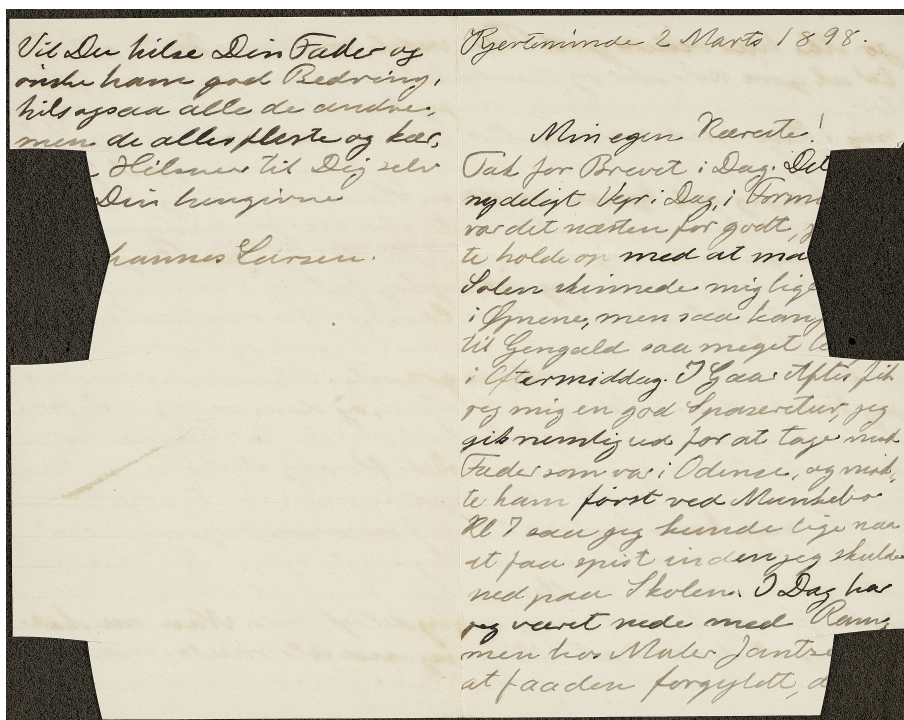 Vil Du hilse Din Fader og
ønske ham god Bedring,
hils ogsaa alle de andre.
men de allerfleste og kær,
Hilsner til Dig selv
Din hengivne
hannes Larsen.
Kjerteminde 2 Marts 1898.
Min egen Kæreste!
Tak for Brevet i Dag. Det
nydeligt Vejr i Dag, i Form
var det næsten for godt,
te holde op med at ma
Solen skinnede mig lige
i Øjnene, men saa
til Gengæld saa meget
i Eftermiddag. I Gaar Aftes fik
jeg mig en god Spaseretur, jeg
gik nemlig ud for at tage mod
Fader som var i Odense, og mød,
te ham først ved Munkebo
Kl 7 saa jeg kunde lige naa
at faa spist inden jeg skulde
ned paa Skolen. I Dag har
jeg været nede med Ram,
men hos Maler Jantze
at faa den forgyldt,